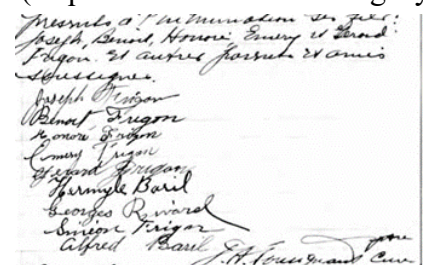 présents à l'inhumation ses fils:
Joseph, Benoit, Honoré, Emery et Gérard
Frigon. Et autres parents et amis
soussignés.
Joseph Frigon
Benoit Frigon
Honoré Frigon
Emery Frigon
Gérard Frigon
Hermyle Baril
Georges Rivard
Siméon Frigon
Alfred Baril
J. H. ptre
Curé